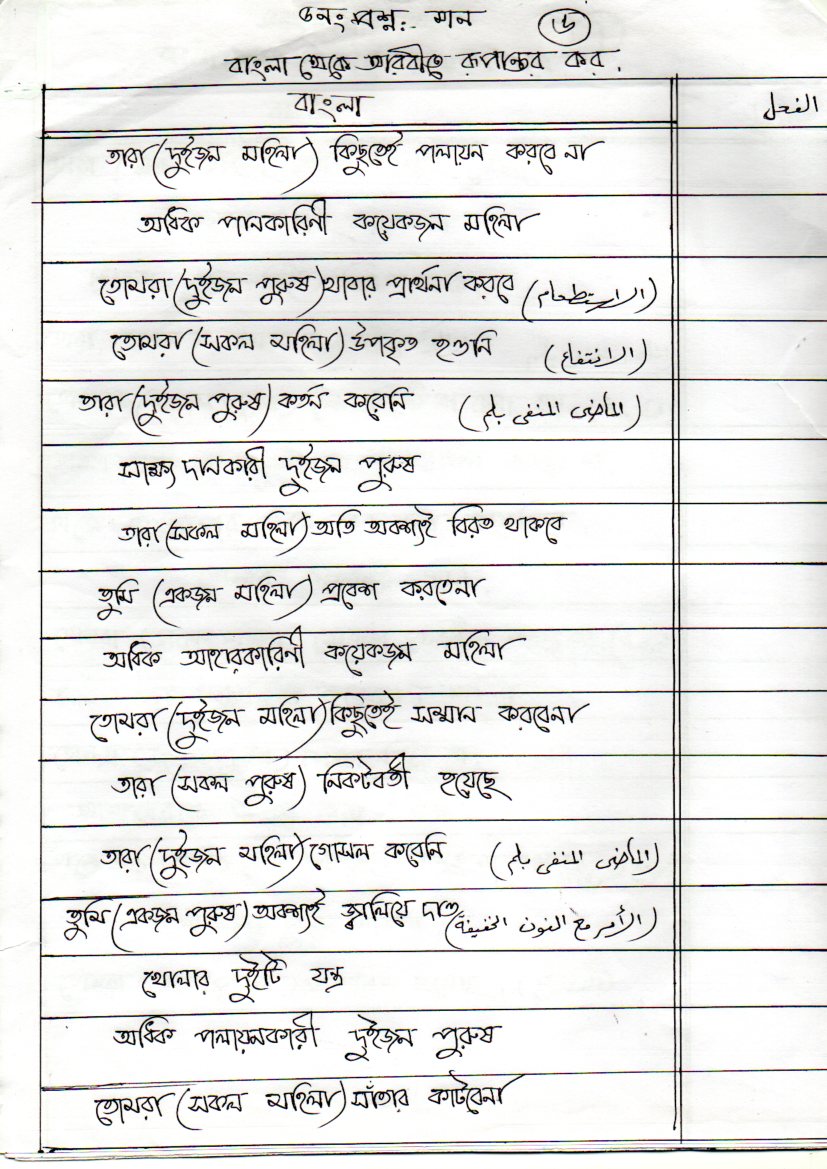 ৩নং প্রশ্ন: মান ১৬
বাংলা থেকে আরবীতে রূপান্তর কর.
বাংলা الفعل
তারা (দুইজন মহিলা) কিছুতেই পলায়ন করবে না
অধিক পানকারিনী কয়েকজন মহিলা
তোমরা (দুইজন পুরুষ) খাবার প্রার্থনা করবে (الاستطعام)
তোমরা (সকল মহিলা) উপকৃত হওনি (الانتفاع)
তারা (দুইজন পুরুষ) কর্তন করেনি (الماضى المنفى بلم)
সাক্ষ্য দানকারী দুইজন পুরুষ
তারা (সকল মহিলা) অতি অবশ্যই বিরত থাকবে
তুমি (একজন মহিলা) প্রবেশ করতেনা
অধিক আহারকারিনী কয়েকজন মহিলা
তোমরা (দুইজন মহিলা) কিছুতেই সম্মান করবেনা
তারা (সকল পুরুষ) নিকটবর্তী হয়েছে
তারা (দুইজন মহিলা) গোসল করেনি (الماضى المنفى بلم)
তুমি (একজন পুরুষ) অবশ্যই জ্বালিয়ে দাও (الأمر مع النون الخفيفة)
খোলার দুইটি যন্ত্র
অধিক পলায়নকারী দুইজন পুরুষ
তোমরা (সকল মহিলা) সাঁতার কাটবেনা